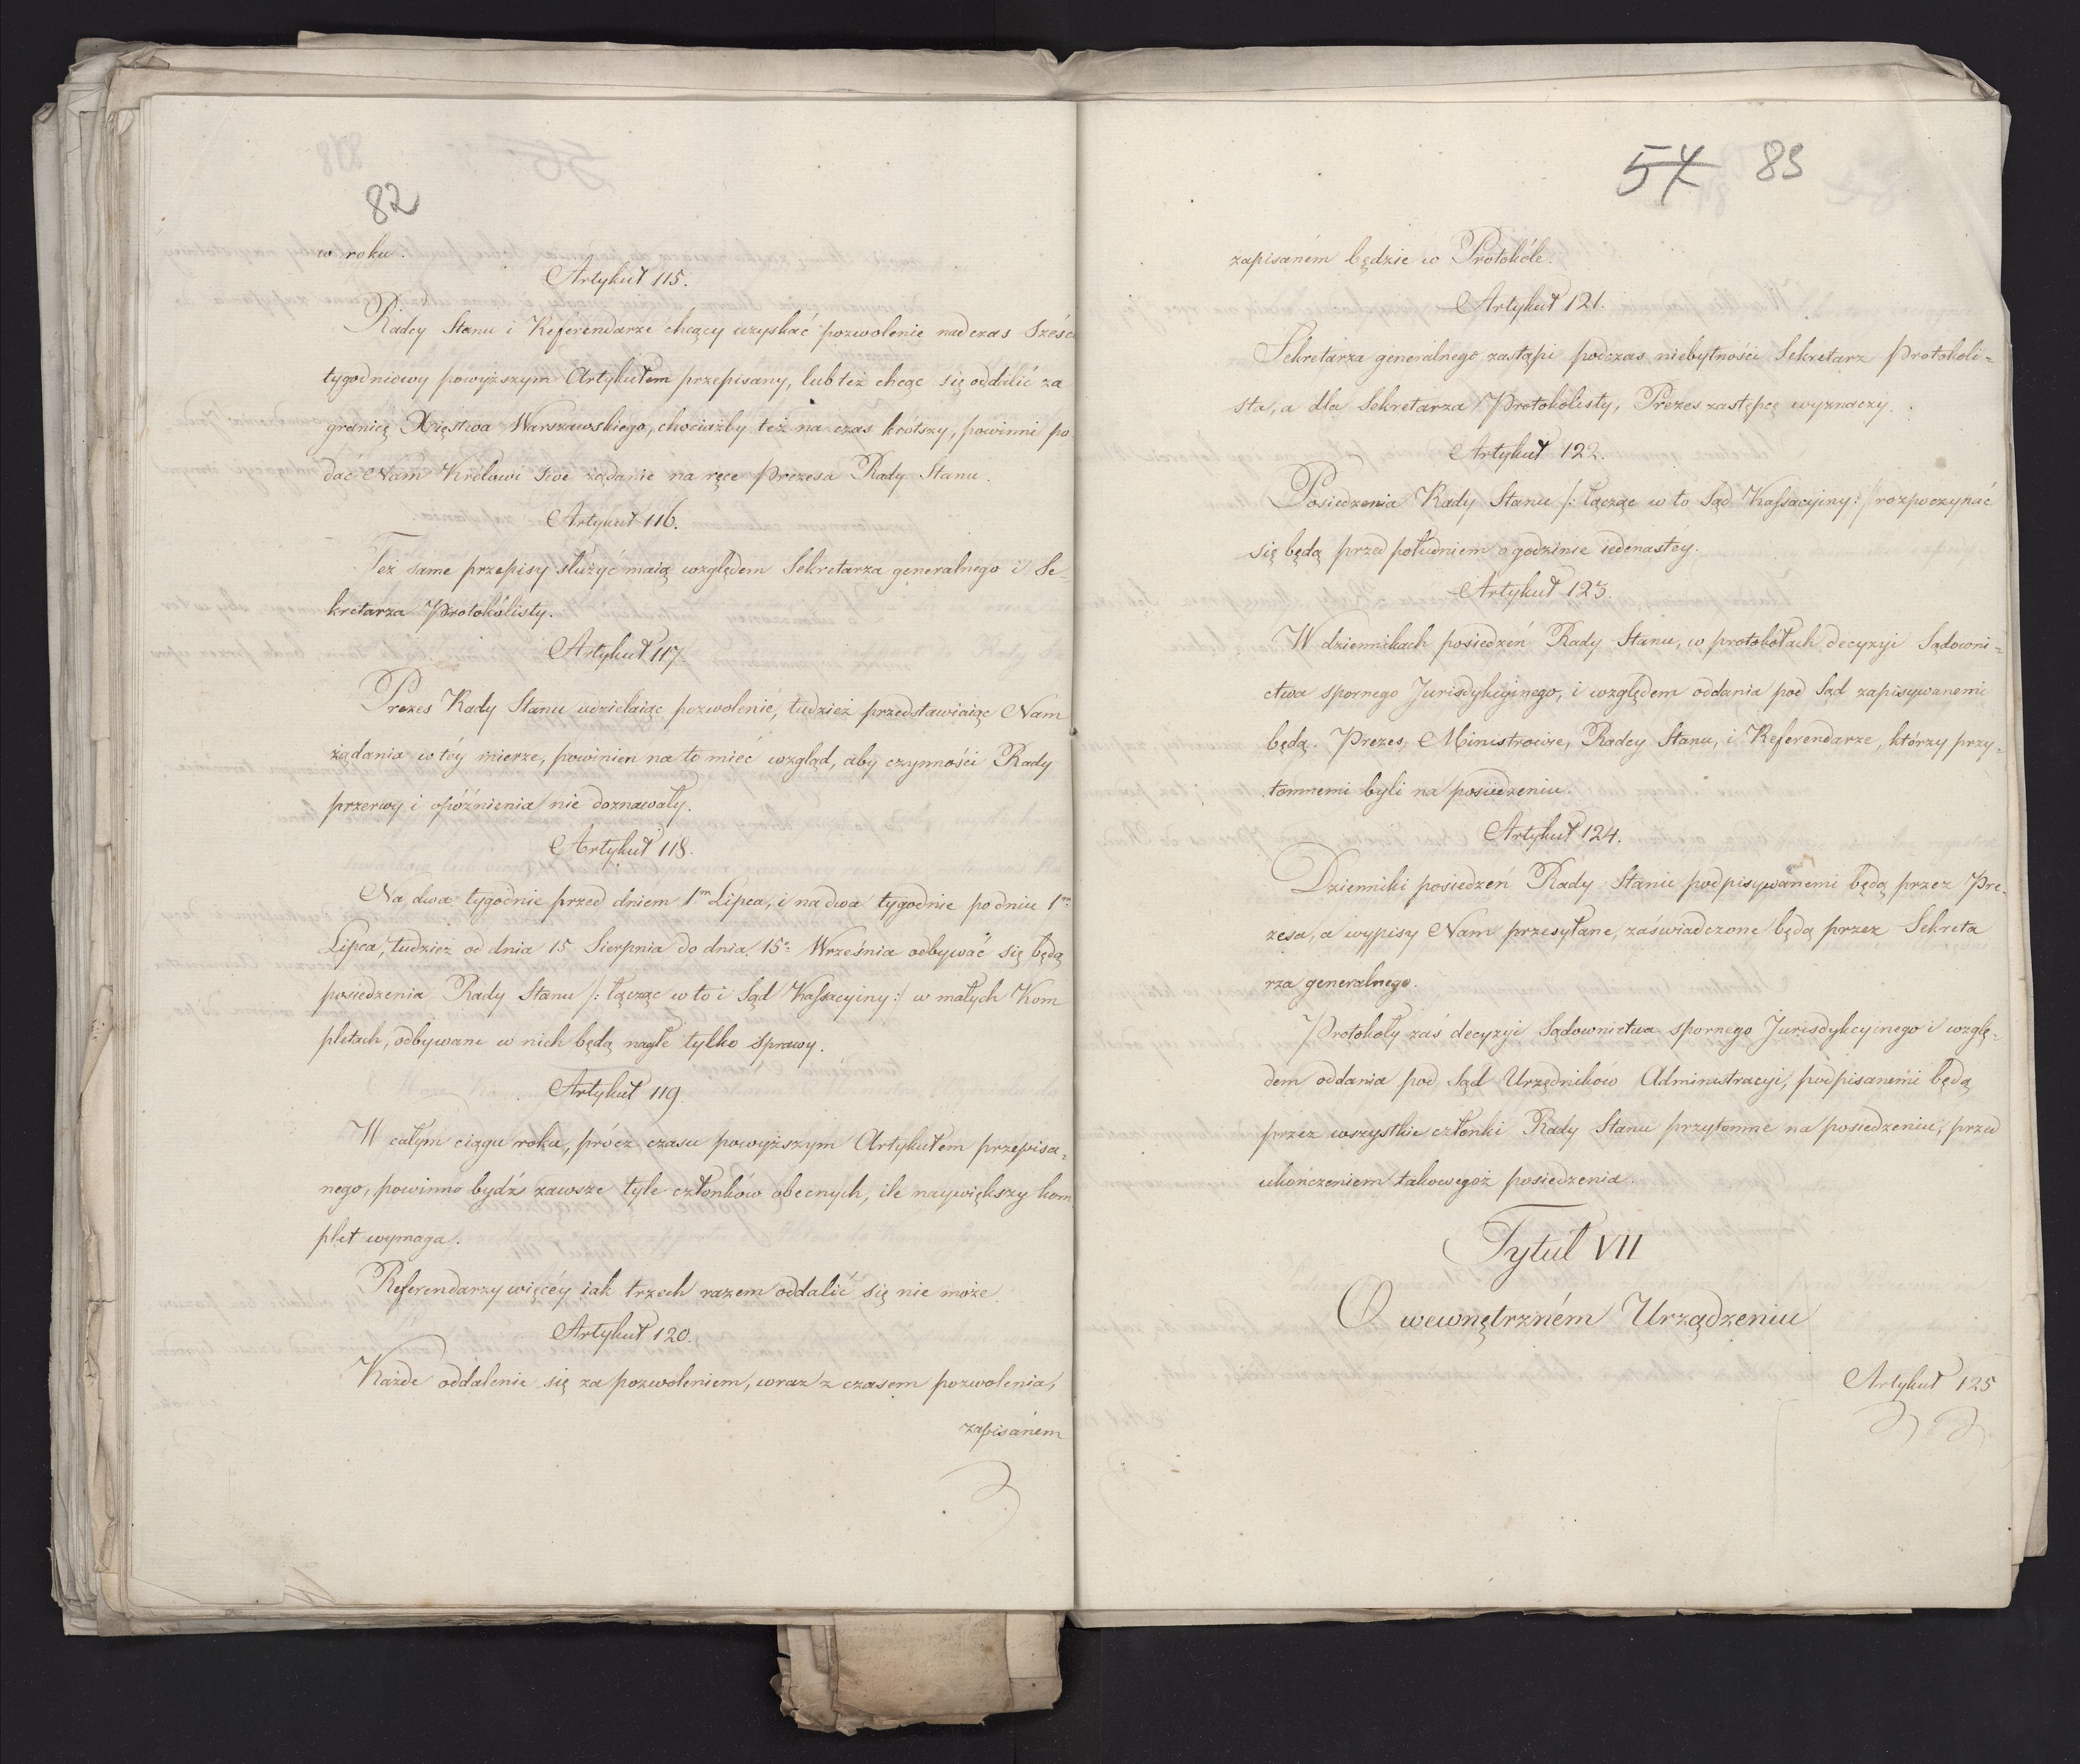 82
w roku.
Artykuł 115.
Radcy Stanu i Referendarze chcący uzyskać pozwolenie nad czas sześcio
tygodniowy powyższym Artykułem przepisany, lub też chcąc się oddalić za
granicę Xięstwa Warszawskiego, chociażby też na czas krótszy, powinni po
dać Nam Królowi swe żądanie na ręce Prezesa Rady Stanu.
Artykuł 116.
Też same przepisy służyć maią względem Sekretarza generalnego i Se-
kretarza Protokólisty.
Artykuł 117.
Prezes Rady Stanu udzielaiąc pozwolenie, tudzież przedstawiaiąc Nam
żądania w téy mierze, powinien na to mieć wzgląd, aby czynności Rady
przerwy i opóźnienia nie doznawały.
Artykuł 118.
Na dwa tygodnie przed dniem 1m Lipca, i na dwa tygodnie po dniu 1m
Lipca, tudzież od dnia 15 Sierpnia do dnia 15= Września odbywać się będą
posiedzenia Rady Stanu /: łącząc w to i Sąd Kassacyiny:/ w małych Kom
pletach, odbywane w nich będą nagłe tylko sprawy.
Artykuł 119
W całym ciągu roku, prócz czasu powyższym Artykułem przepisa=
nego, powinno bydź zawsze tyle członków obecnych, ile naywiększy kom
plet wymaga.
Referendarzy więcéy iak trzech razem oddalić się nie może
Artykuł 120.
Każde oddalenie się za pozwoleniem, wraz z czasem pozwolenia,
zapisaném
54 83
zapisaném będzie w Protokóle.
Artykuł 121.
Sekretarza generalnego zastąpi podczas niebytności Sekretarz Protokoli=
sta, a dla Sekretarza Protokolisty, Prezes zastępcę wyznaczy.
Artykuł 122.
Posiedzenia Rady Stanu /: łącząc w to Sąd Kassacyiny:/ rozpoczynać
się będą przed południem o godzinie iedenastéy.
Artykuł 123.
W dziennikach posiedzeń Rady Stanu, w protokółach decyzyi Sądowni=
ctwa spornego Jurisdykcyinego, i względem oddania pod Sąd zapisywanemi
będą. Prezes, Ministrowie, Radcy Stanu, i Referendarze, którzy przy-
tomnemi byli na posiedzeniu.
Artykuł 124.
Dzienniki posiedzeń Rady Stanu podpisywanemi będą przez Pre-
zesa, a wypisy Nam przesyłane, zaświadczone będą przez Sekreta
rza generalnego.
Protokoły zaś decyzyi Sądownictwa spornego Jurisdykcyinego i wzglę-
dem oddania pod Sąd Urzędników Administracyi, podpisanemi będą
przez wszystkie członki Rady Stanu przytomne na posiedzeniu, przed
ukończeniem takowegoż posiedzenia.
Tytuł VII
O wewnętrzném Urządzeniu
Artykuł 125